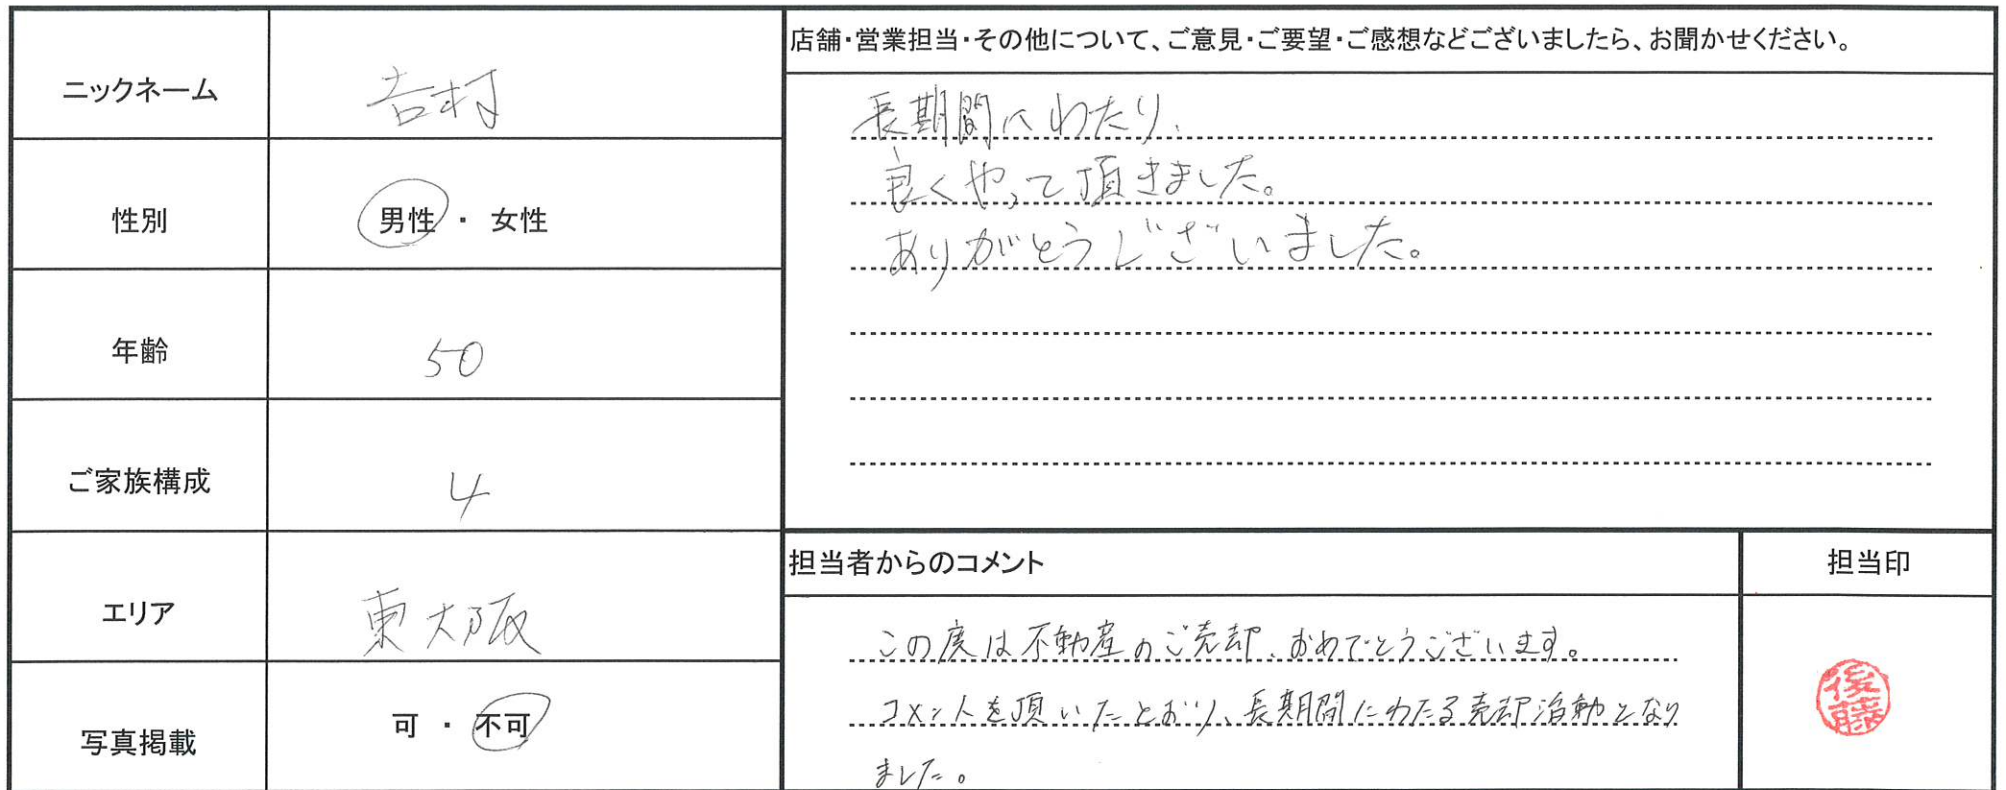 ニックネーム
吉村
性別
男性 ・ 女性
年齢
50
ご家族構成
4
エリア
東大阪
写真掲載
可 ・ 不可
店舗・営業担当・その他について、ご意見・ご要望・ご感想などございましたら、お聞かせください。
長期間にわたり、
良くやって頂きました。
ありがとうございました。
担当者からのコメント
この度は不動産のご売却、おめでとうございます。
コメントを頂いたとおり、長期間にわたる売却活動となり
ました。
担当印
後藤